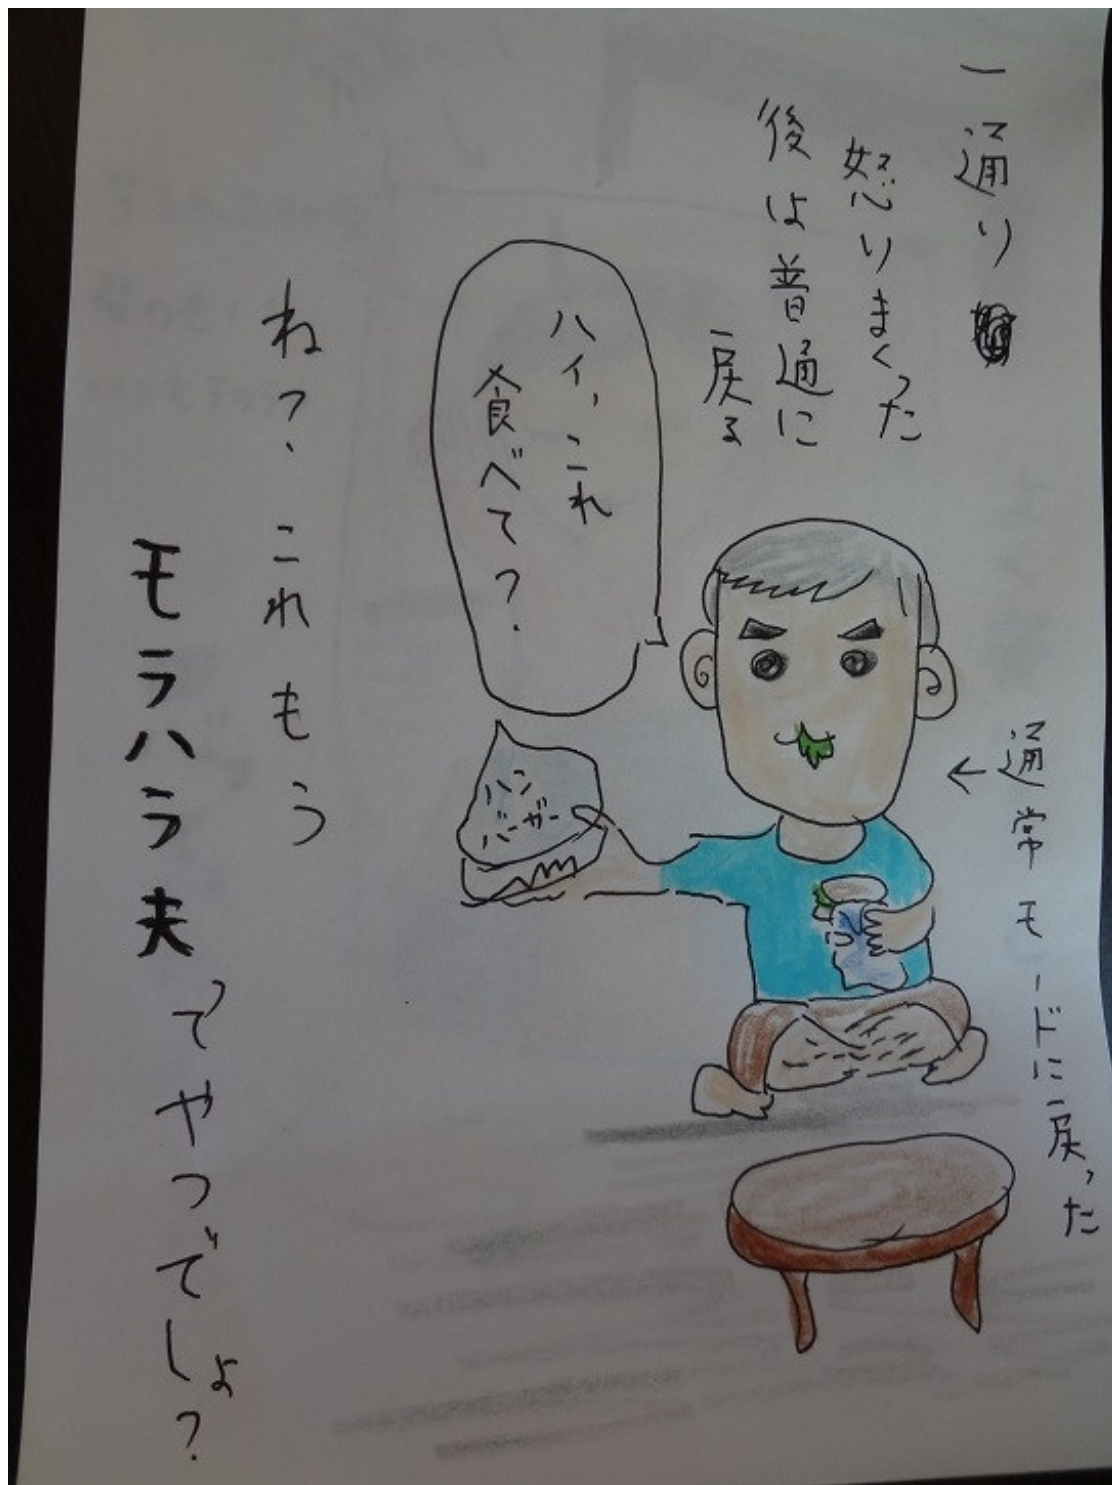 一通り
怒りまくった
後は普通に
戻る
ハイ、これ
食べて？
ハン
バーガー
←通常モードに戻った
ね？、これもう
モラハラ夫ってやつでしょ？